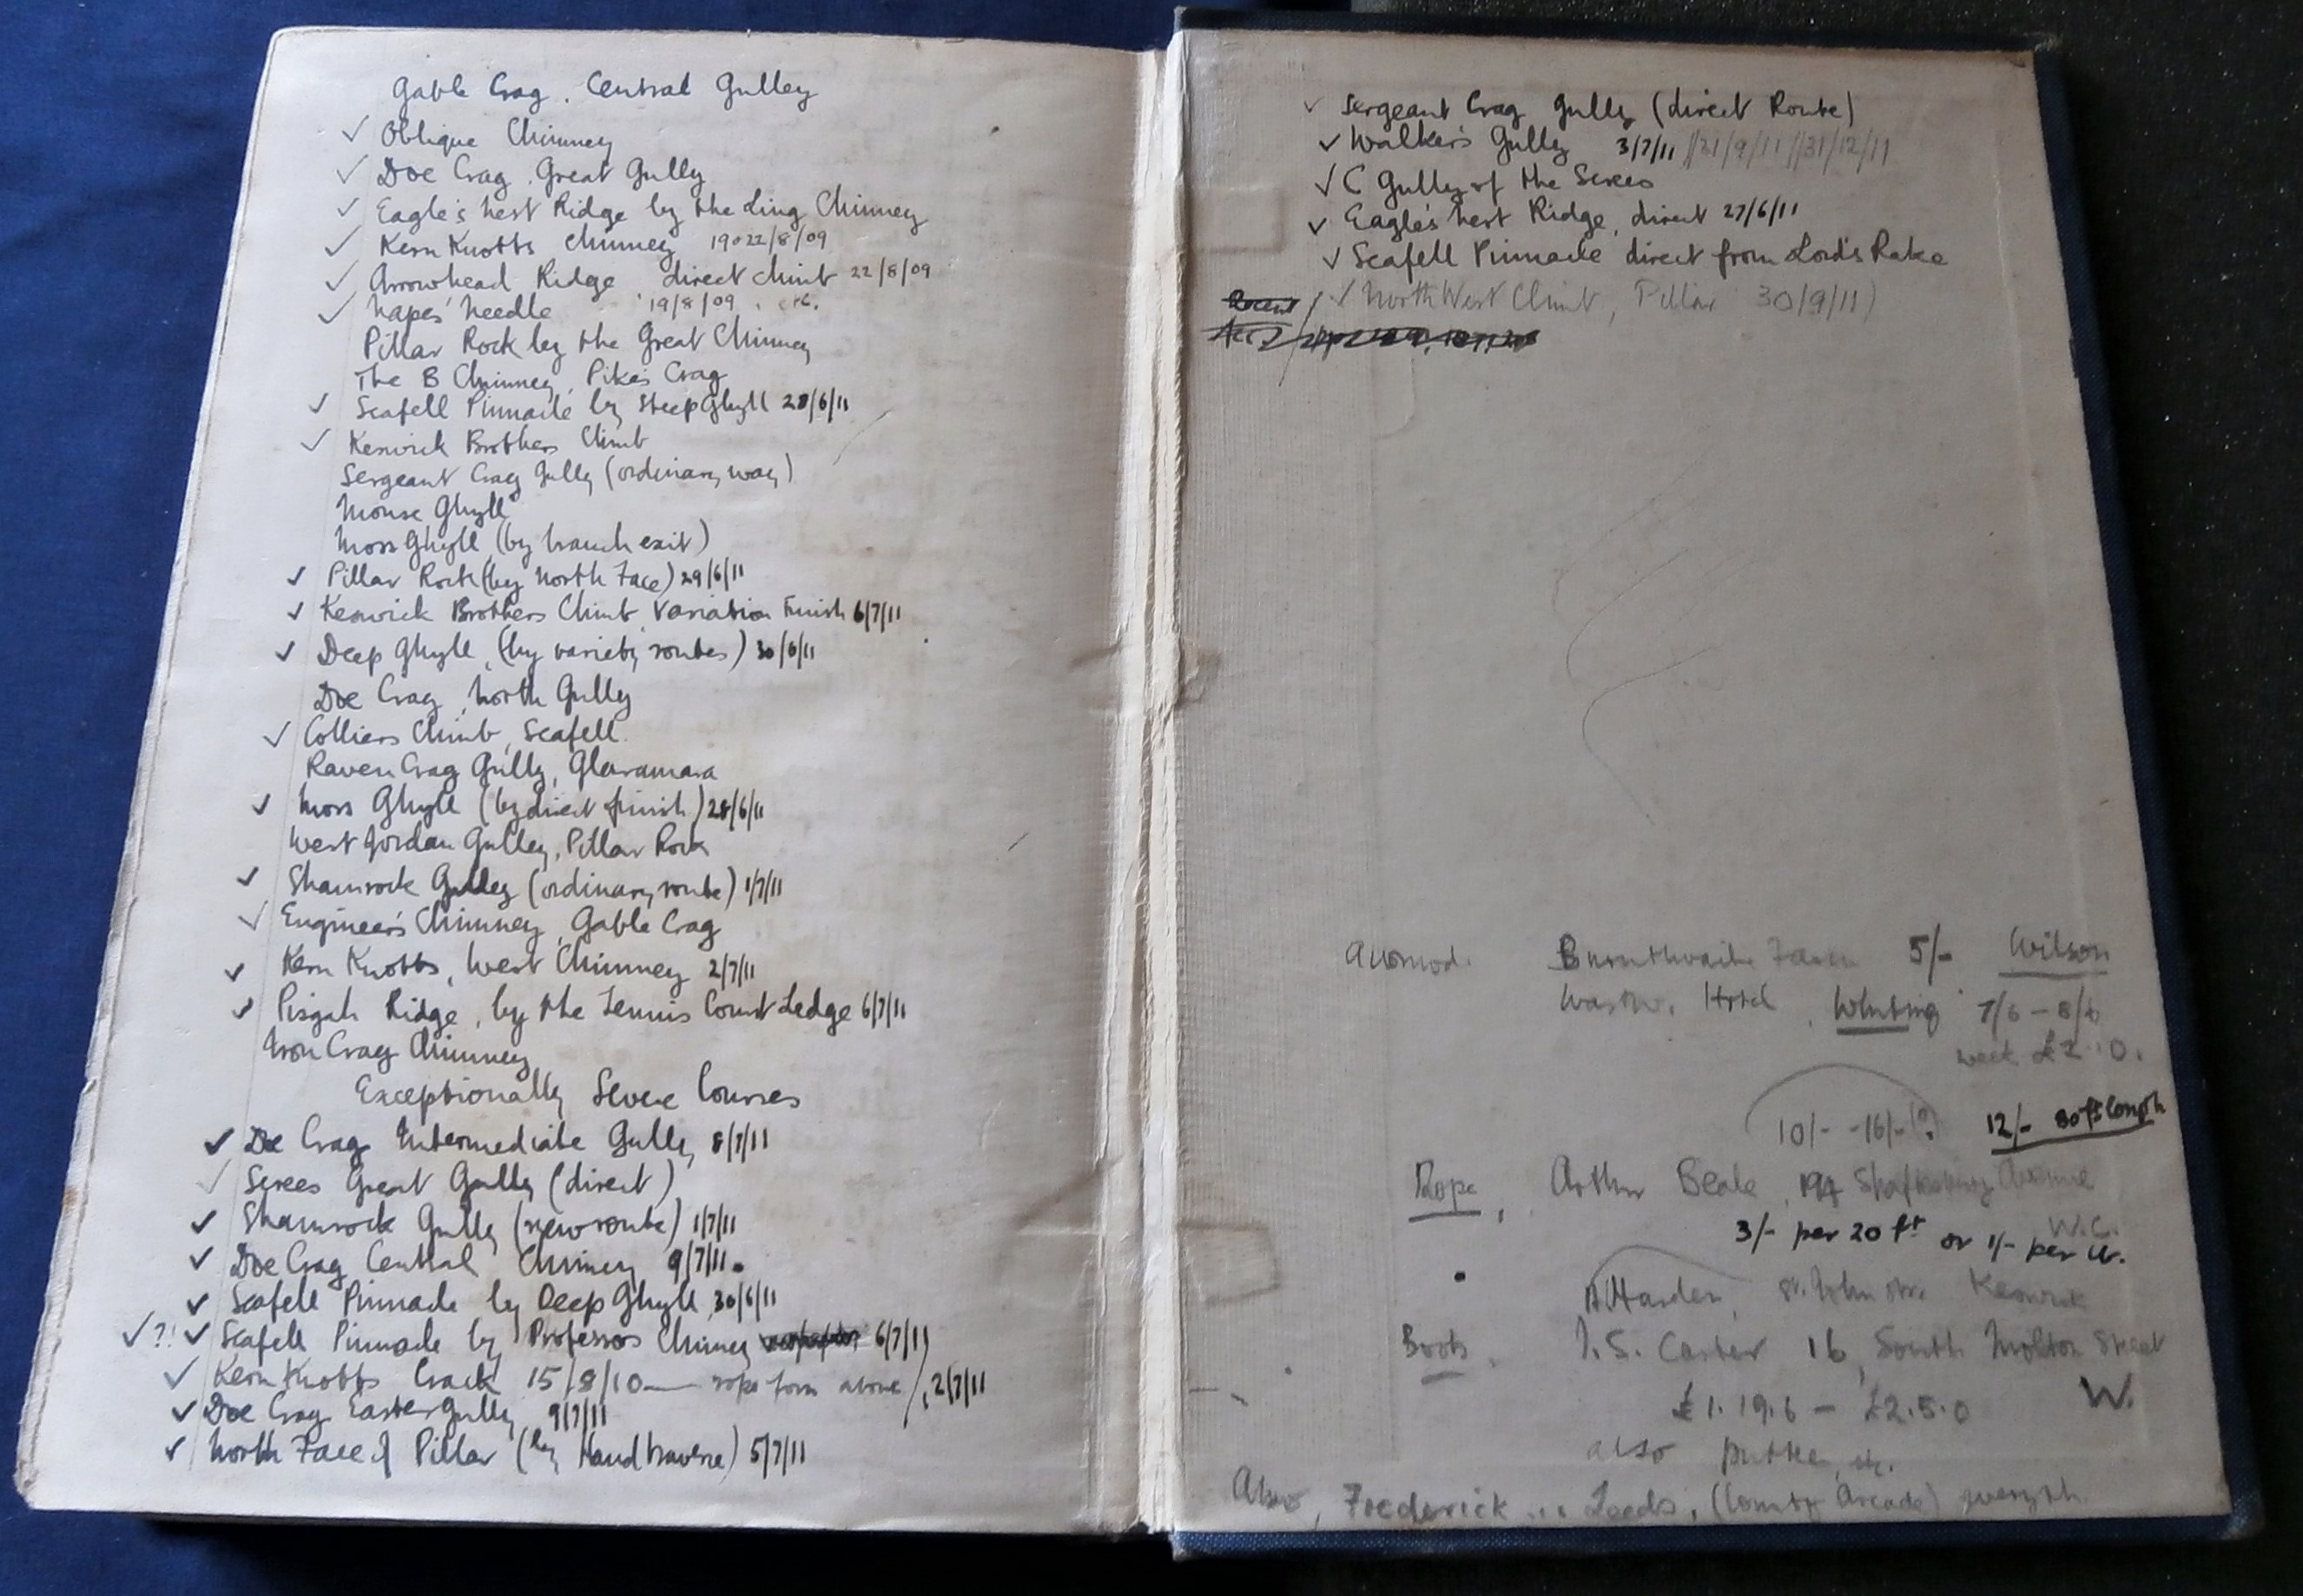 Gable Crag. Central Gulley
✓ Oblique Chimney
✓ Doe Crag. Great Gully
✓ Eagle's Nest Ridge by the Ling Chimney
✓ Kern Knotts Chimney 19 22/8/09
✓ Arrowhead Ridge direct climb 22/8/09
✓ Napes Needle 19/8/09
Pillar Rock by the Great Chimney
The B Chimney, Pikes Crag
✓ Scafell Pinnacle by Steep Ghyll 28/6/11
✓ Keswick Brothers Climb
Sergeant Crag Gully (ordinary way)
Mouse Ghyll
Moss Ghyll (by branch exit)
✓ Pillar Rock (by North Face) 29/6/11
✓ Keswick Brothers Climb, Variation Finish 6/7/11
✓ Deep Ghyll, (by variety routes) 30/6/11
Doe Crag, North Gully
✓ Colliers Climb, Scafell.
Raven Crag Gully, Glaramara
✓ Moss Ghyll (by direct finish) 28/6/11
West Jordan Gulley, Pillar Rock
✓ Shamrock Gulley (ordinary route) 1/7/11
✓ Engineer's Chimney, Gable Crag
✓ Kern Knotts, West Chimney 2/7/11
✓ Pisgah Ridge, by the Tennis Court Ledge 6/7/11
Iron Crag Chimney
Exceptionally Severe Courses
✓ Doe Crag Intermediate Gully, 8/7/11
✓ Screes Great Gully (direct)
✓ Shamrock Gully (new route) 1/7/11
✓ Doe Crag Central Chimney 9/7/11.
✓ Scafell Pinnacle by Deep Ghyll 30/6/11
✓?! ✓ Scafell Pinnacle by Professors Chimney 6/7/11
✓ Kern Knotts Crack 15/8/10 — rope from above/, 2/7/11
✓ Doe Crag Easter Gully, 9/7/11
✓ North Face of Pillar (by Hand traverse) 5/7/11
✓ Sergeant Crag Gully (direct Route)
✓ Walker's Gully 3/7/11 //21/9/11 //31/12/11
✓ C Gully of the Screes
✓ Eagle's Nest Ridge, direct 27/6/11
✓ Scafell Pinnacle direct from Lord's Rake
✓ North West Climb, Pillar 30/9/11)
Accomod. Burnthwaite Farm 5/- Wilson
Wastw. Hotel, Whiting 7/6 - 8/6
week £2.10.
10/- -16/-(?) 12/- 80ft length
Rope, Arthur Beale, 194 Shaftesbury Avenue
W.C.
3/- per 20 ft or 1/- per lb.
A Harden, St. John str. Keswick
Boots. J.S. Carter 16, South Molton Street
£1.19.6 - £2.5.0 W.
also puttees, etc.
Also, Frederick ... Leeds, (County Arcade)